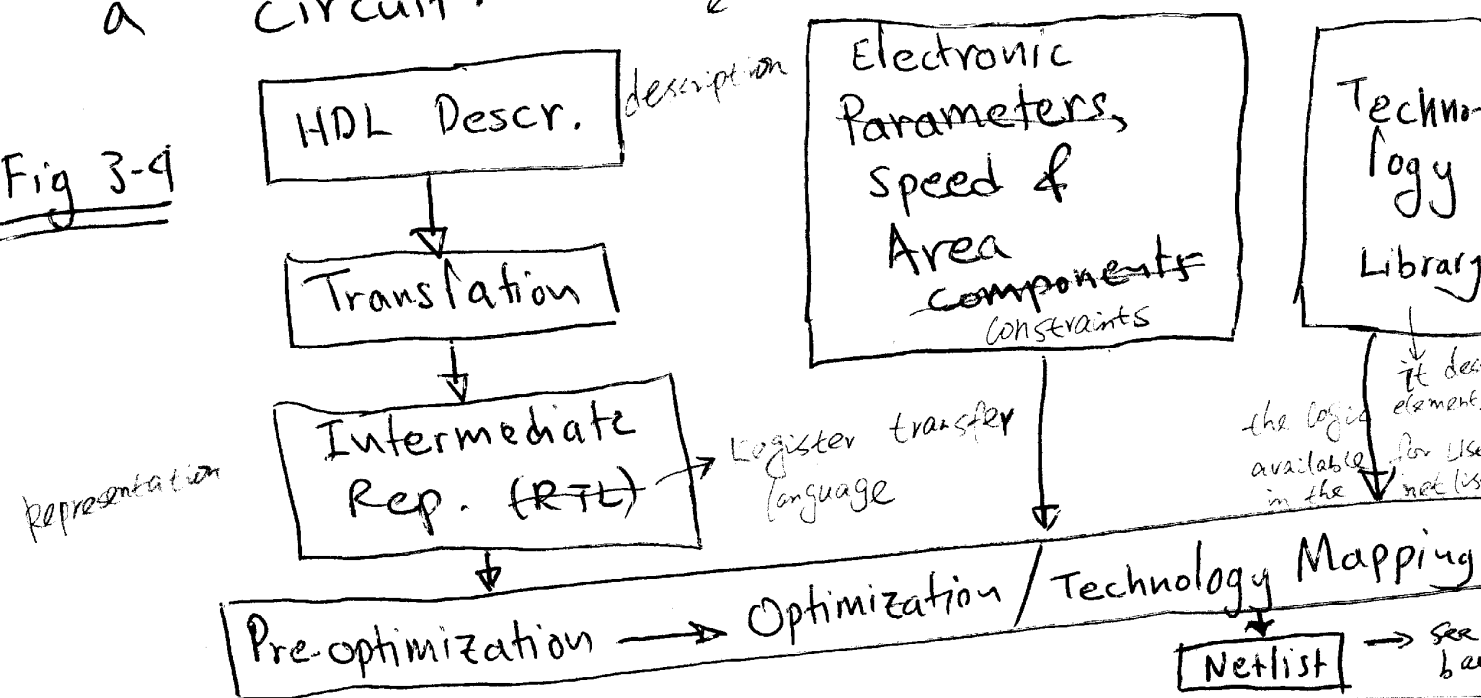 a circuit.
HDL Descr.
description
Fig 3-4
Translation
Intermediate
Rep. (RTL)
representation
Logister transfer
language
Electronic
Parameters,
Speed &
Area
components
constraints
Techno-
logy
Library
it des
the logic element
available for use
in the netlis
Pre-optimization → Optimization / Technology Mapping
Netlist → see
ba